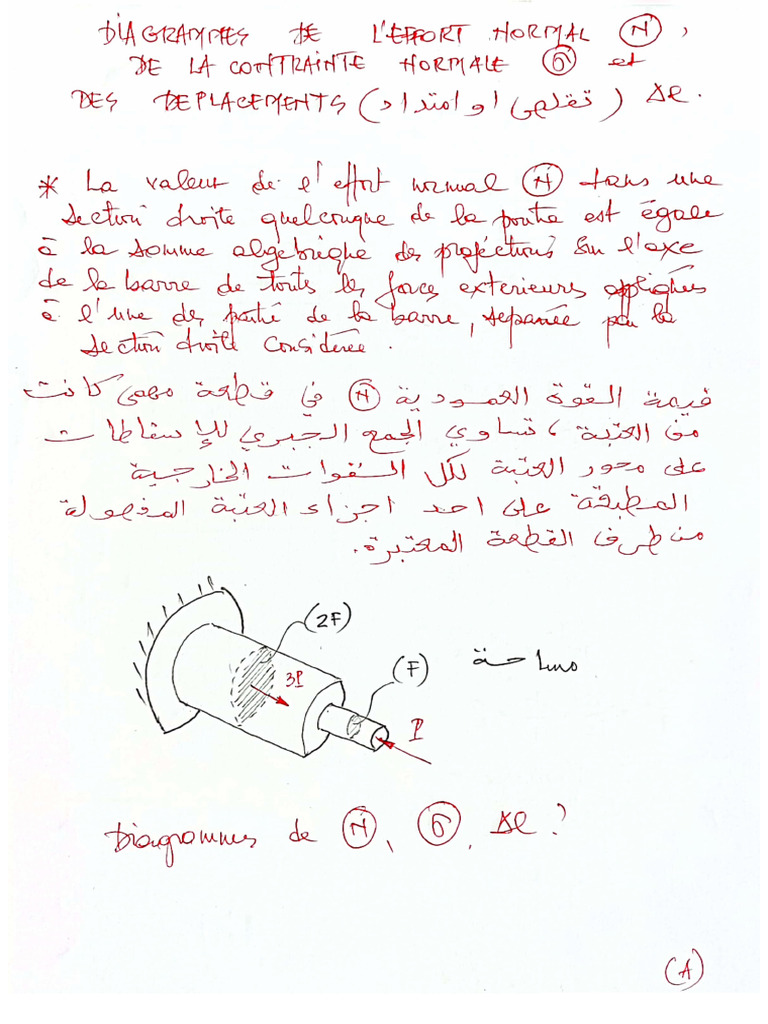 DIAGRAMMES DE L'EFFORT NORMAL (N),
DE LA CONTRAINTE NORMALE (σ) et
DES DEPLACEMENTS (تقلص او امتداد) Δl.
* La valeur de l'effort normal (N) dans une
section droite quelconque de la poutre est égale
à la somme algébrique des projections sur l'axe
de la barre de toutes les forces exterieurs appliqués
à l'une des partie de la barre, separée par la
section droite considerée.
قيمة القوة العمودية (N) في قطعة مهمى كانت
من العتبة، تساوي الجمع الجبري للإسقاطات
على محور العتبة لكل القوات الخارجية
المطبقة على احد اجزاء العتبة المفصولة
من طرف القطعة المعتبرة.
(2F)
(F) مساحة
3P
P
Diagrammes de (N), (σ), Δl?
(A)